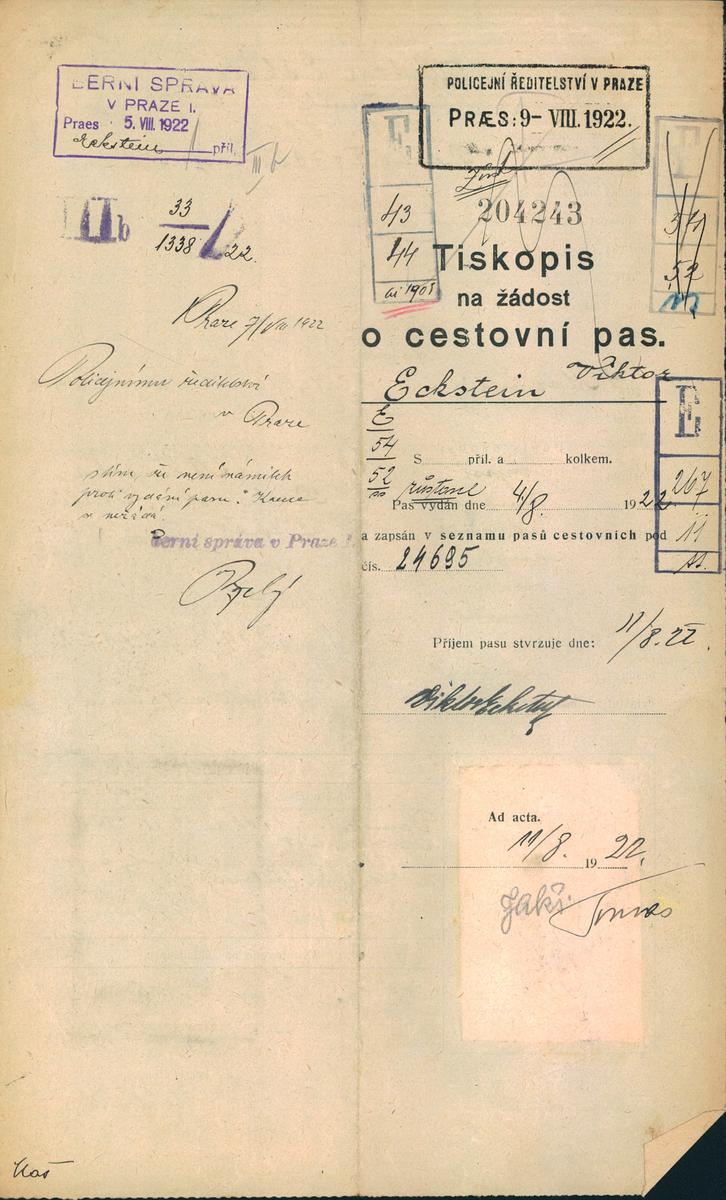 BERNÍ SPRÁVA
V PRAZE I.
Praes 5. VIII. 1922
Eckstein příl.
IIb
33
1338 / 22.
Praze 7/VIII 1922
Policejnímu ředitelství
v Praze
není námitek
proti vydání pasu.
Berní správa v Praze I.
POLICEJNÍ ŘEDITELSTVÍ V PRAZE
PRÆS: 9- VIII. 1922.
E
43
44
204243
Tiskopis
na žádost
o cestovní pas.
Eckstein Viktor
E
54
52
S příl. a kolkem.
Pas vydán dne 4/8 1922
a zapsán v seznamu pasů cestovních pod
čís. 24695
E
267
11
Příjem pasu stvrzuje dne: 11/8. 22.
Viktor Eckstein
Ad acta.
11/8. 19 22.